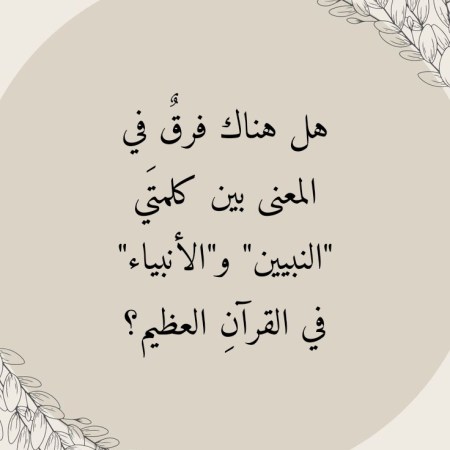 هل هناك فرقٌ في
المعنى بين كلمتَي
"النبيين" و"الأنبياء"
في القرآنِ العظيم؟